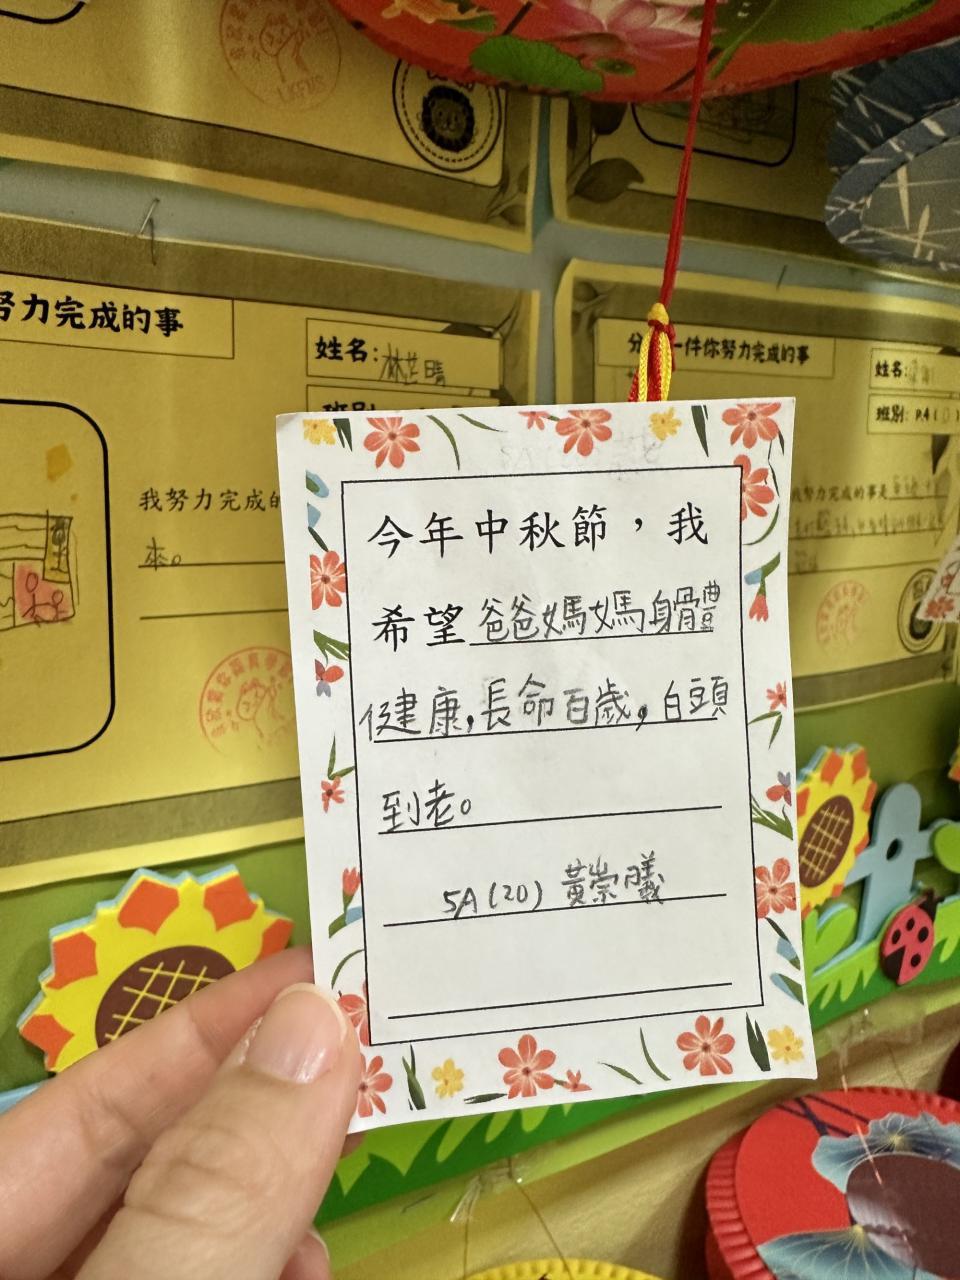 努力完成的事
姓名：林芷晴
班別
我努力完成的
來。
分 一件你努力完成的事
姓名：
班別：P.4（
我努力完成的事是
今年中秋節，我
希望爸爸媽媽身體
健康，長命百歲，白頭
到老。
5A（20）黃崇曦